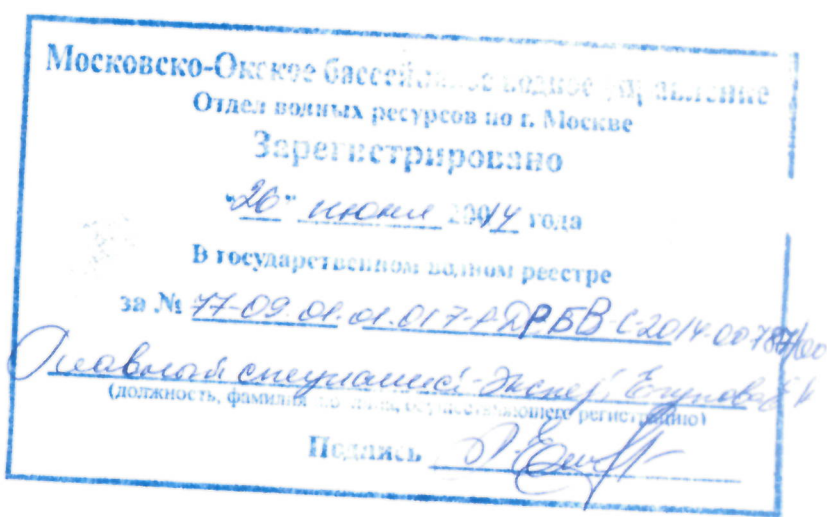 Московско-Окское бассейновое водное управление
Отдел водных ресурсов по г. Москве
Зарегистрировано
"26" июня 2014 года
В государственном водном реестре
за №
Главный специалист-эксперт Егунова
(должность, фамилия лица, осуществляющего регистрацию)
Подпись